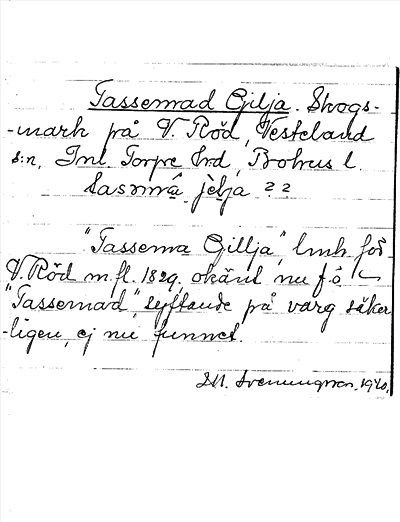 Tassemad Gilja. Skogs-
-mark på V. Röd, Vesteland
s:n, Inl. Torpe Hrd, Bohus l.
tasəmâ jèlja ??
"Tassema Gillja", lmk för
V. Röd m.fl. 1829, okänt nu f.ö.
"Tassemad", syftande på varg säker
-ligen, ej nu funnet.
M. Svenungsson, 1940.